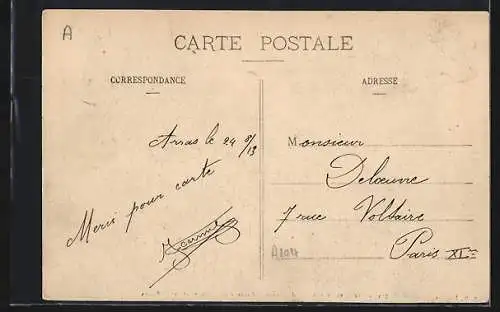 A
CARTE POSTALE
CORRESPONDANCE
ADRESSE
Arras le 24 8/13
Merci pour carte
Monsieur
Delœuvre
7 rue Voltaire
Paris XIme